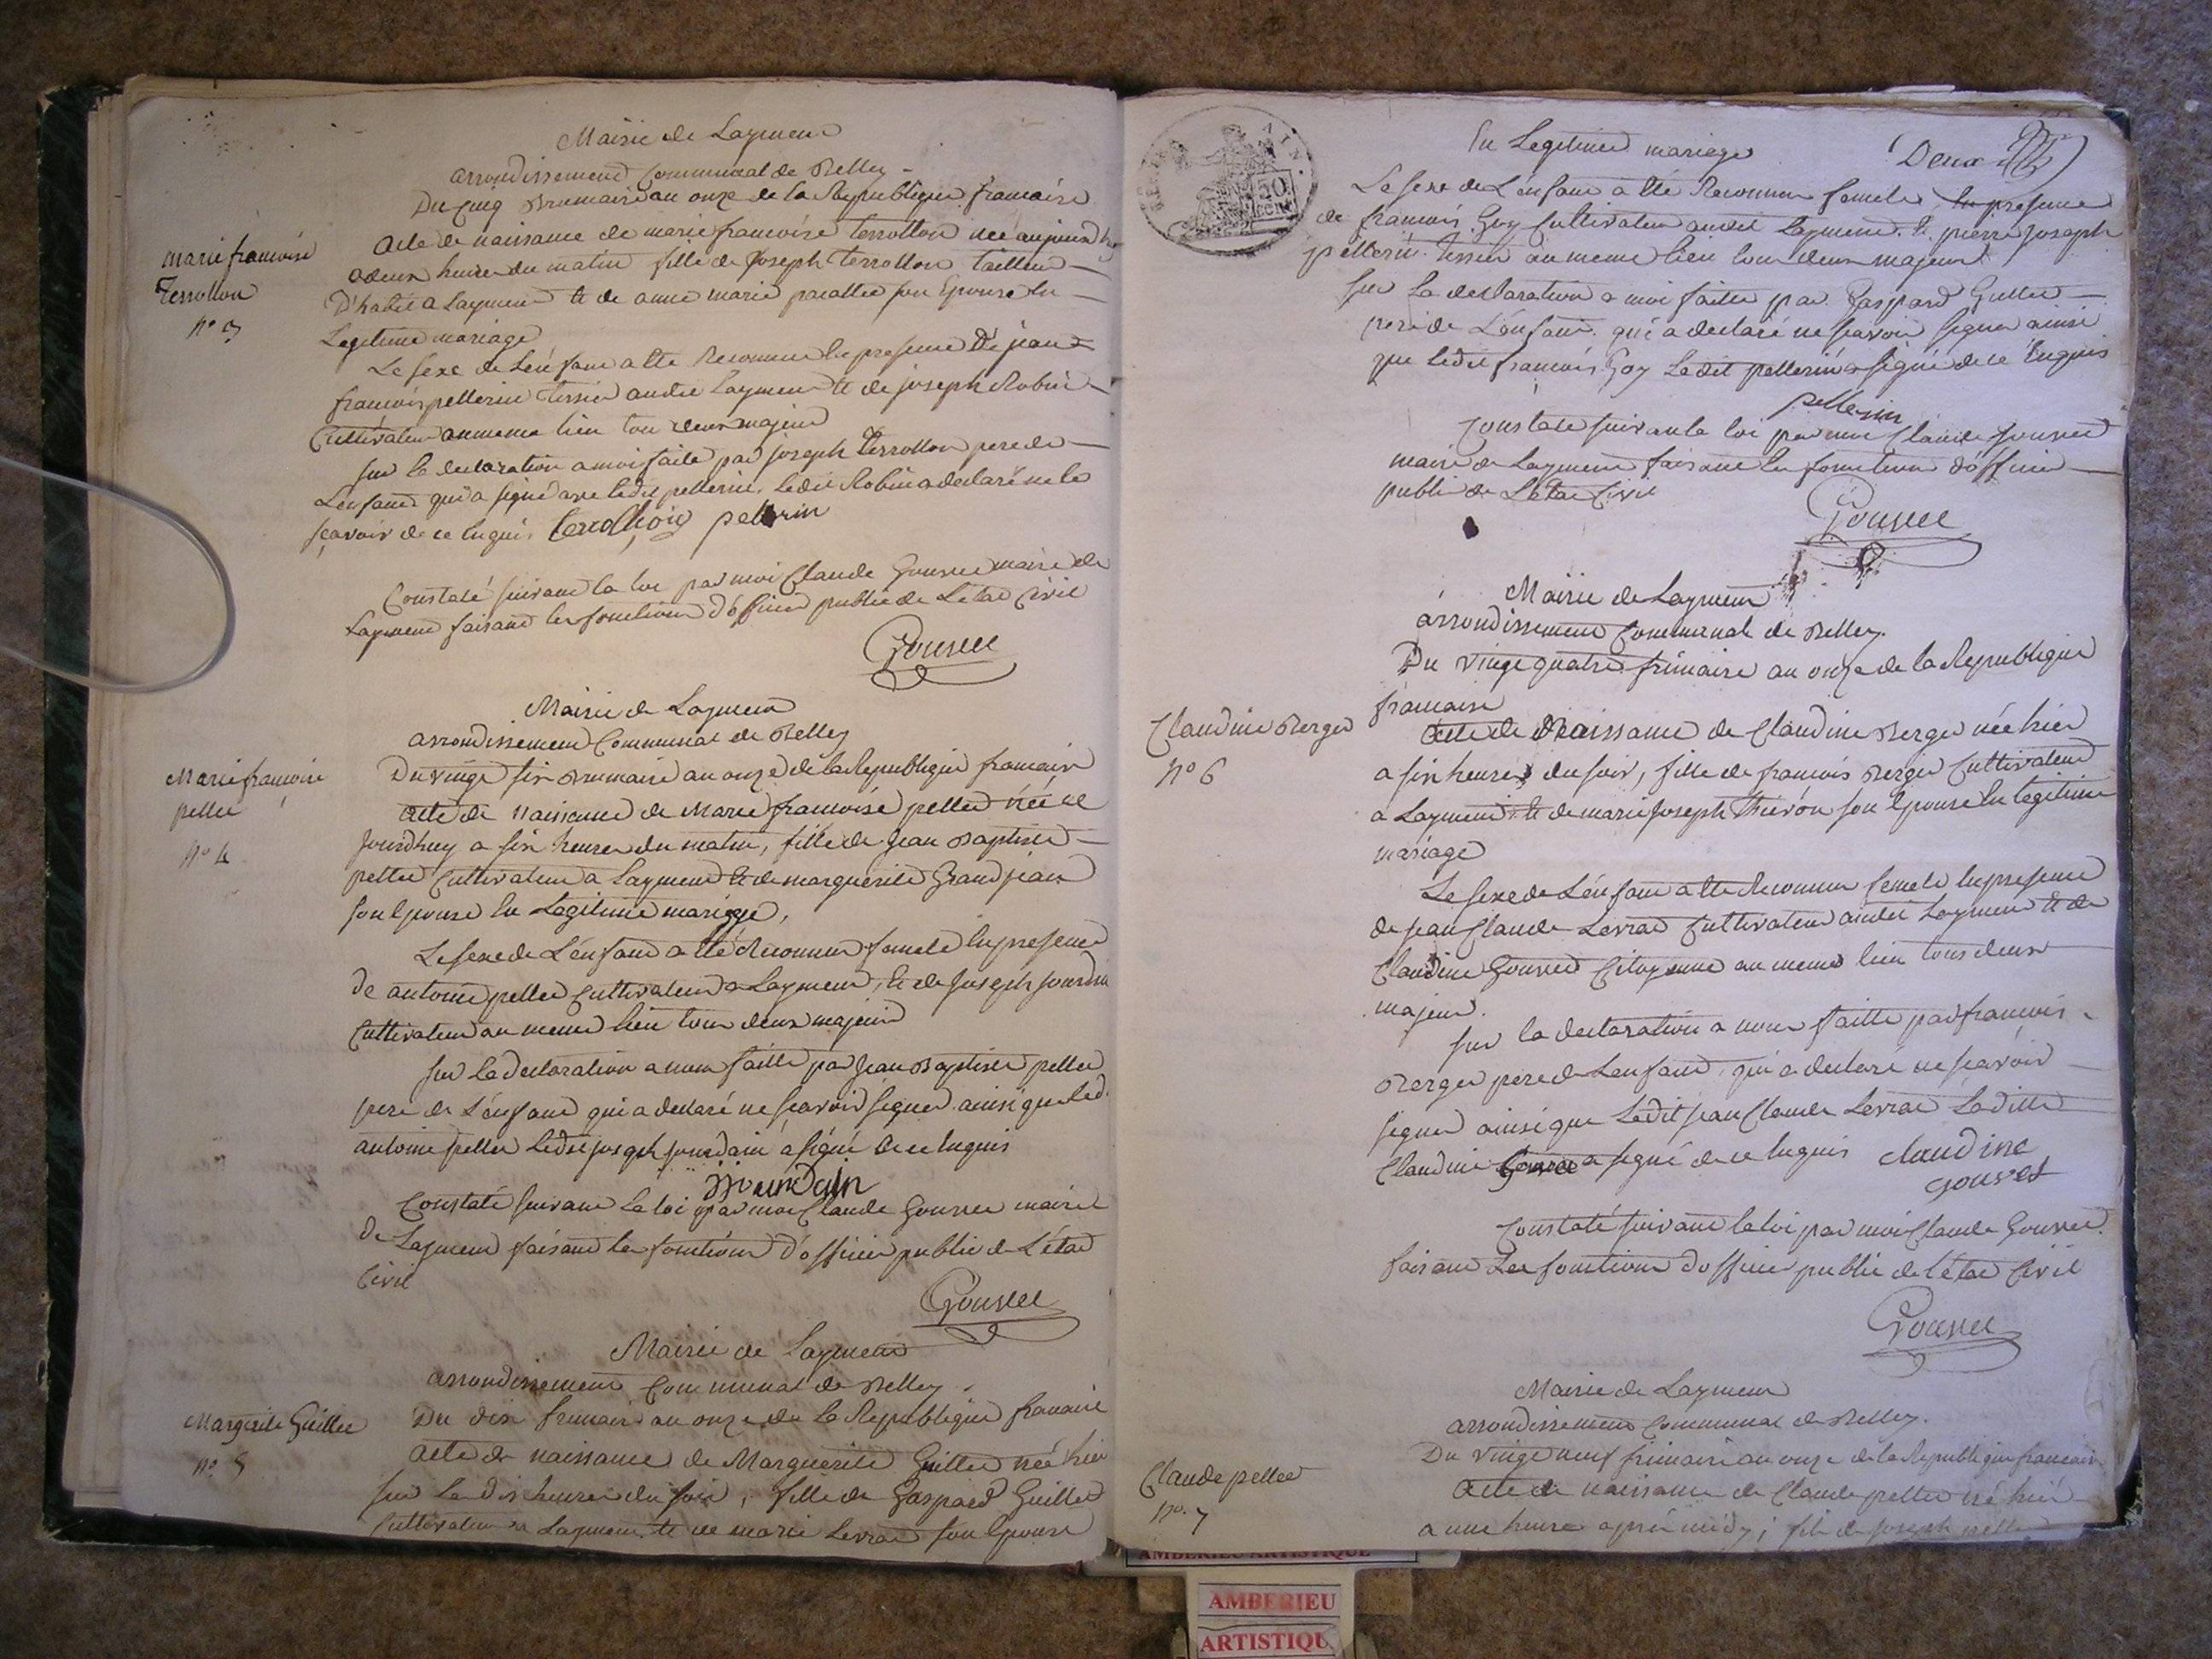 Mairie de Laymen
arrondissement Communal de Belley
Du Cinq Brumaire an onze de la Republique francaise
marie francoise
Terrollon
n° 3
Acte de naissance de marie francoise terrollon née aujourd'hy
a deux heures du matin fille de Joseph terrollon tailleur
D'habit a Layment et de anne marie son Epouse En
Legitime mariage
Le sexe de L'enfant a ete Reconnu En presence De jean
francois pellerin tissier audit Layment et de joseph Robin
Cultivateur au meme lieu tous deux majeur
sur la declaration a moi faite par joseph terrollon pere de
L'enfant qui a signé avec ledit pellerin, ledit Robin a declaré ne le
sçavoir de ce Enquis pellerin
Constaté suivant la loi par moi Claude Gouvet maire de
Layment faisant les fonctions d'officier public de L'etat Civil
Gouvet
Mairie de Laymen
arrondissement Communal de Belley
Marie francoise
pellet
n° 4
Du vingt six Brumaire an onze de la Republique francaise
acte de naissance de Marie francoise pellet née ce
jourdhuy a six heures du matin, fille de Jean Baptiste
pellet Cultivateur a Layment et de marguerite Grandjean
son Epouse En Legitime mariage,
Le sexe de L'enfant a été Reconnu femele En presence
de antoine pellet Cultivateur a Layment, et de Joseph jourdain
Cultivateur au meme lieu tous deux majeur
sur la declaration a nous faitte par Jean Baptiste pellet
pere de L'enfant qui a declaré ne sçavoir signer ainsi que led.
antoine pellet Ledit joseph jourdain a signé de ce Enquis
jourdain
Constaté suivant la loi par moi Claude Gouvet maire
De Layment faisant les fonctions d'officier public de L'état
Civil
Gouvet
Mairie de Laymen
arrondissement Communal de Belley
Marguerite Guillet
n° 5
Du dix frimaire an onze de la Republique francaise
acte de naissance de Marguerite Guillet née hier
sur Les dix heures du soir, fille de Gaspard Guillet
Cultivateur a Layment et de marie Levrat son Epouse
AIN
50
CENT
Deux
En Legitime mariage
Le sexe de L'enfant a été Reconnu femele En presence
de francois Goy Cultivateur audit Layment et pierre Joseph
pellerin tissier au meme lieu tous deux majeur
sur la declaration a moi faitte par Gaspard Guillet
pere de L'enfant qui a declaré ne sçavoir signer ainsi
que ledit francois Goy Ledit pellerin a signé de ce Enquis
pellerin
Constaté suivant la loi par moi Claude Gouvet
maire de Layment faisant les fonctions d'officier
public de L'etat Civil
Gouvet
Mairie de Laymen
arrondissement Communal de Belley.
Du vingt quatre frimaire an onze de la Republique
francaise
Claudine Berger
n° 6
Acte de Naissance de Claudine Berger née hier
a six heures du soir, fille de francois Berger Cultivateur
a Layment et de marie Joseph son Epouse En legitime
mariage
Le sexe de L'enfant a été Reconnu femele En presence
de Jean Claude Levrat Cultivateur audit Layment et de
Claudine Gouvet Citoyenne au meme lieu tous deux
majeur.
sur la declaration a nous faitte par francois
Berger pere de L'enfant qui a declaré ne sçavoir
signer ainsi que Ledit jean Claude Levrat La ditte
Claudine Gouvet a signé de ce Enquis claudine
gouvet
Constaté suivant la loi par moi Claude Gouvet
faisant Les fonctions d'officier public de l'état Civil
Gouvet
Mairie de Laymen
arrondissement Communal de Belley.
Du vingt neuf frimaire an onze de la Republique francaise
Claude pellet
n°. 7
Acte de naissance de Claude pellet né hier
a une heure après midy, fils de Joseph pellet
AMBERIEU ARTISTIQUE
AMBERIEU
ARTISTIQU